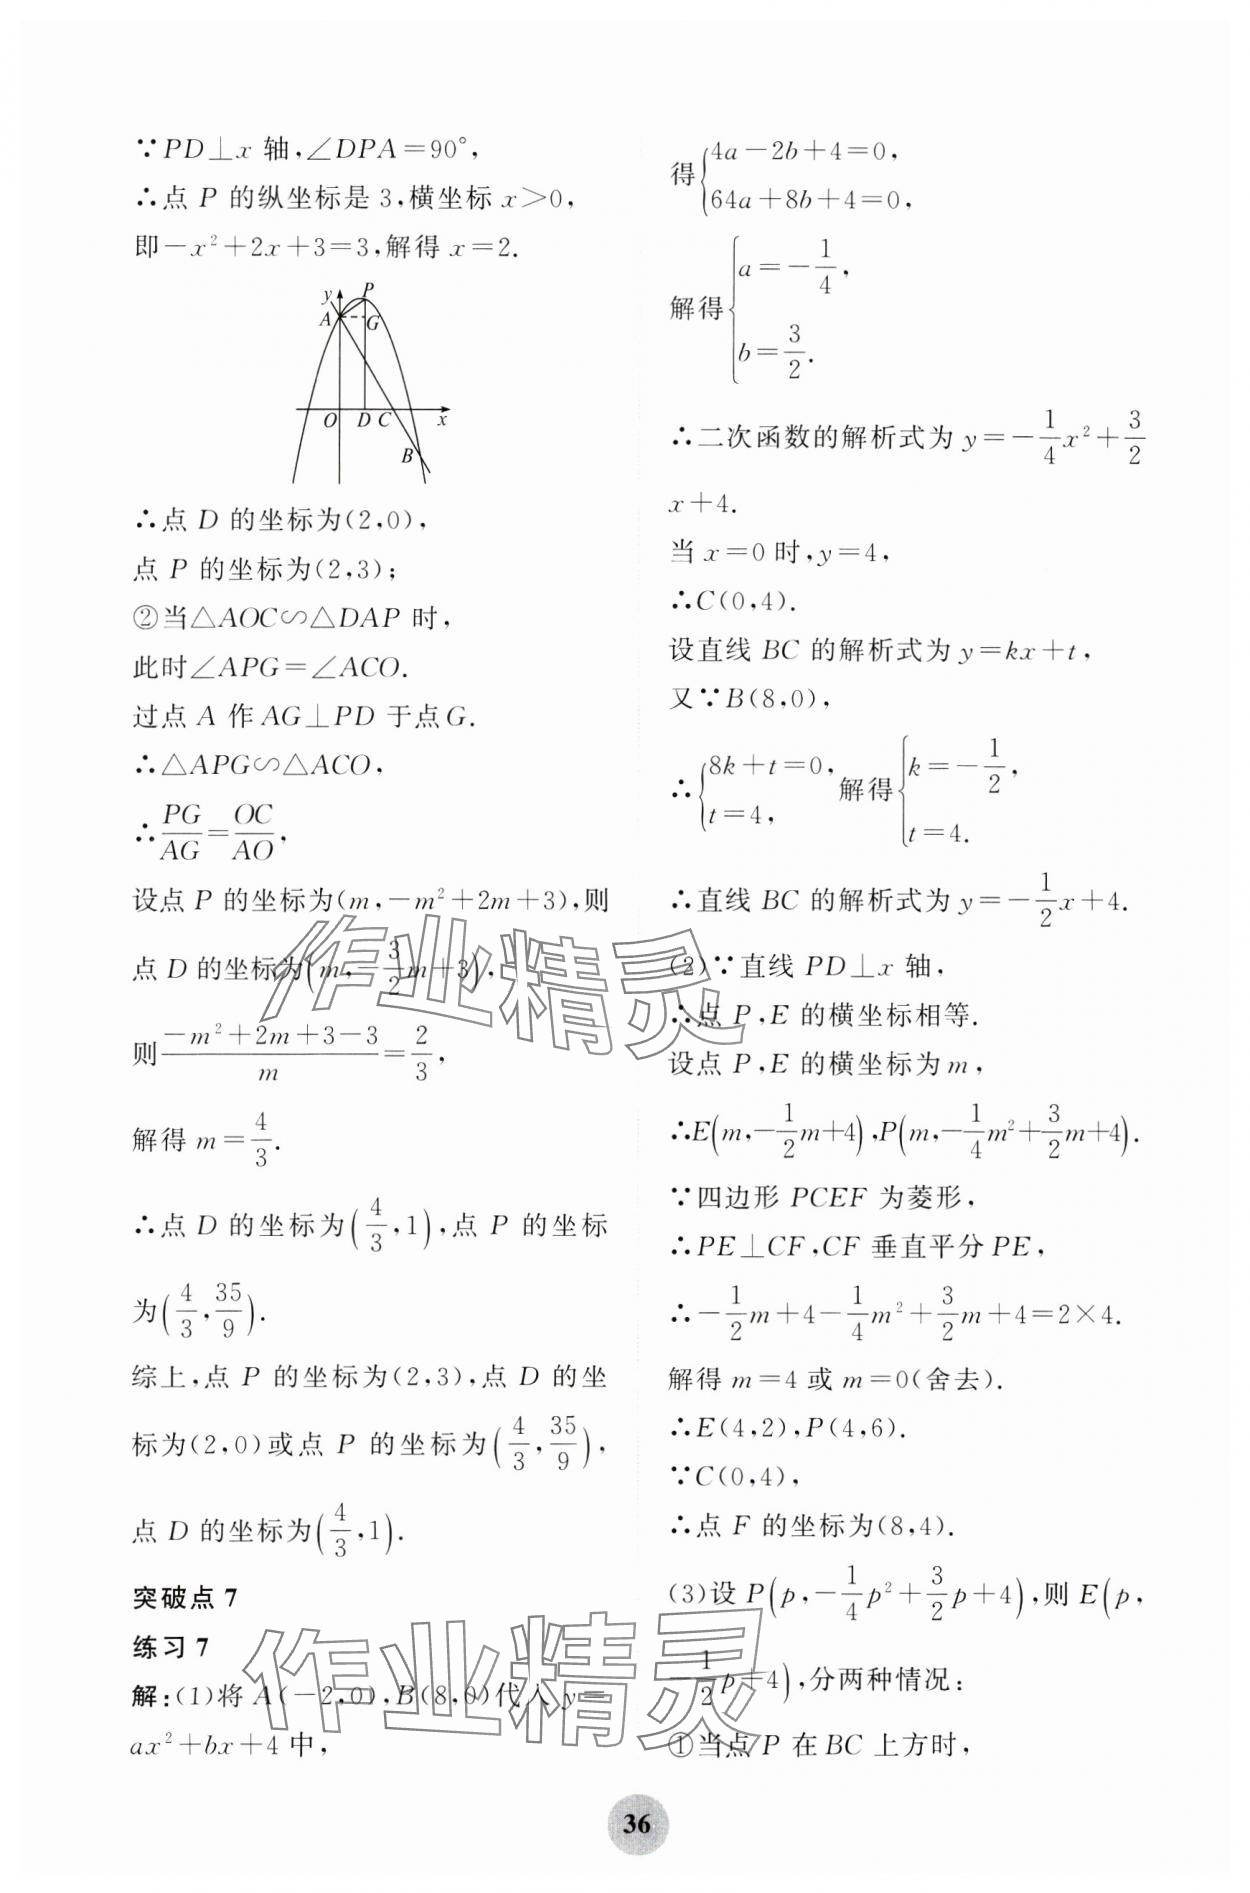 ∵PD⊥x 轴,∠DPA=90°,
∴点 P 的纵坐标是 3,横坐标 x>0,
即-x²+2x+3=3,解得 x=2.
y P
A G
O D C x
B
∴点 D 的坐标为(2,0),
点 P 的坐标为(2,3);
②当△AOC∽△DAP 时,
此时∠APG=∠ACO.
过点 A 作 AG⊥PD 于点G.
∴△APG∽△ACO,
∴PG/AG=OC/AO,
设点 P 的坐标为(m,-m²+2m+3),则
点 D 的坐标为(m,-3/2m+3),
则(-m²+2m+3-3)/m=2/3,
解得 m=4/3.
∴点 D 的坐标为(4/3,1),点 P 的坐标
为(4/3,35/9).
综上,点 P 的坐标为(2,3),点 D 的坐
标为(2,0)或点 P 的坐标为(4/3,35/9),
点 D 的坐标为(4/3,1).
突破点 7
练习 7
解:(1)将 A(-2,0),B(8,0)代入 y=
ax²+bx+4 中,
得{4a-2b+4=0,
64a+8b+4=0,
解得{a=-1/4,
b=3/2.
∴二次函数的解析式为 y=-1/4x²+3/2
x+4.
当 x=0 时,y=4,
∴C(0,4).
设直线 BC 的解析式为 y=kx+t,
又∵B(8,0),
∴{8k+t=0, t=4, 解得{k=-1/2, t=4.
∴直线 BC 的解析式为 y=-1/2x+4.
(2)∵直线 PD⊥x 轴,
∴点 P,E 的横坐标相等.
设点 P,E 的横坐标为 m,
∴E(m,-1/2m+4),P(m,-1/4m²+3/2m+4).
∵四边形 PCEF 为菱形,
∴PE⊥CF,CF 垂直平分 PE,
∴-1/2m+4-1/4m²+3/2m+4=2×4.
解得 m=4 或 m=0(舍去).
∴E(4,2),P(4,6).
∵C(0,4),
∴点 F 的坐标为(8,4).
(3)设 P(p,-1/4p²+3/2p+4),则 E(p,
-1/2p+4),分两种情况:
①当点 P 在 BC 上方时,
作业精灵
作业精灵
36